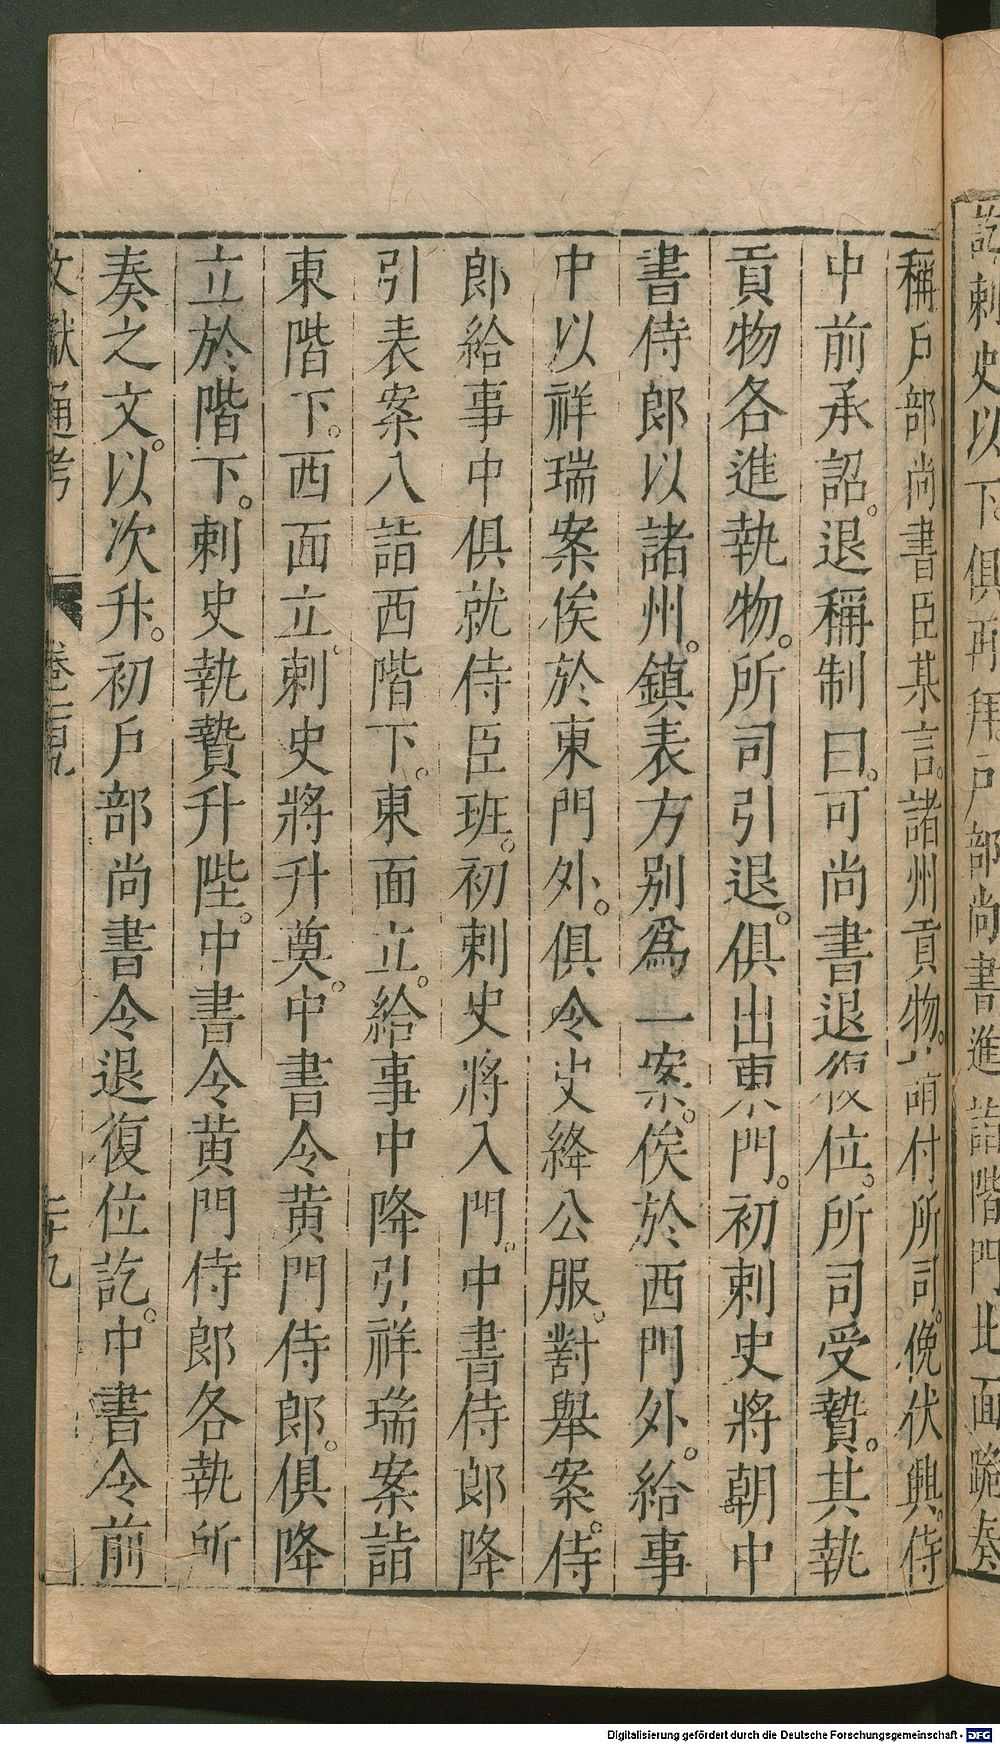 訖刺史以下俱再拜戶部尚書進詣階間北面跪奏
稱戶部尚書臣某言諸州貢物。請付所司。俛伏興。侍
中前承詔。退稱制曰。可尚書退復位。所司受贄。其執
貢物各進執物。所司引退。俱出東門。初刺史將朝中
書侍郎以諸州。鎮表方別爲一案。俟於西門外。給事
中以祥瑞案俟於東門外。俱令史絳公服。對舉案。侍
郎給事中俱就侍臣班。初刺史將入門。中書侍郎降
引表案入詣西階下。東面立。給事中降引祥瑞案詣
東階下。西面立。刺史將升奠。中書令黃門侍郎。俱降
立於階下。刺史執贄升陛。中書令黃門侍郎各執所
奏之文。以次升。初戶部尚書令退復位訖。中書令前
文獻通考 卷一百九 二十九
Digitalisierung gefördert durch die Deutsche Forschungsgemeinschaft - DFG